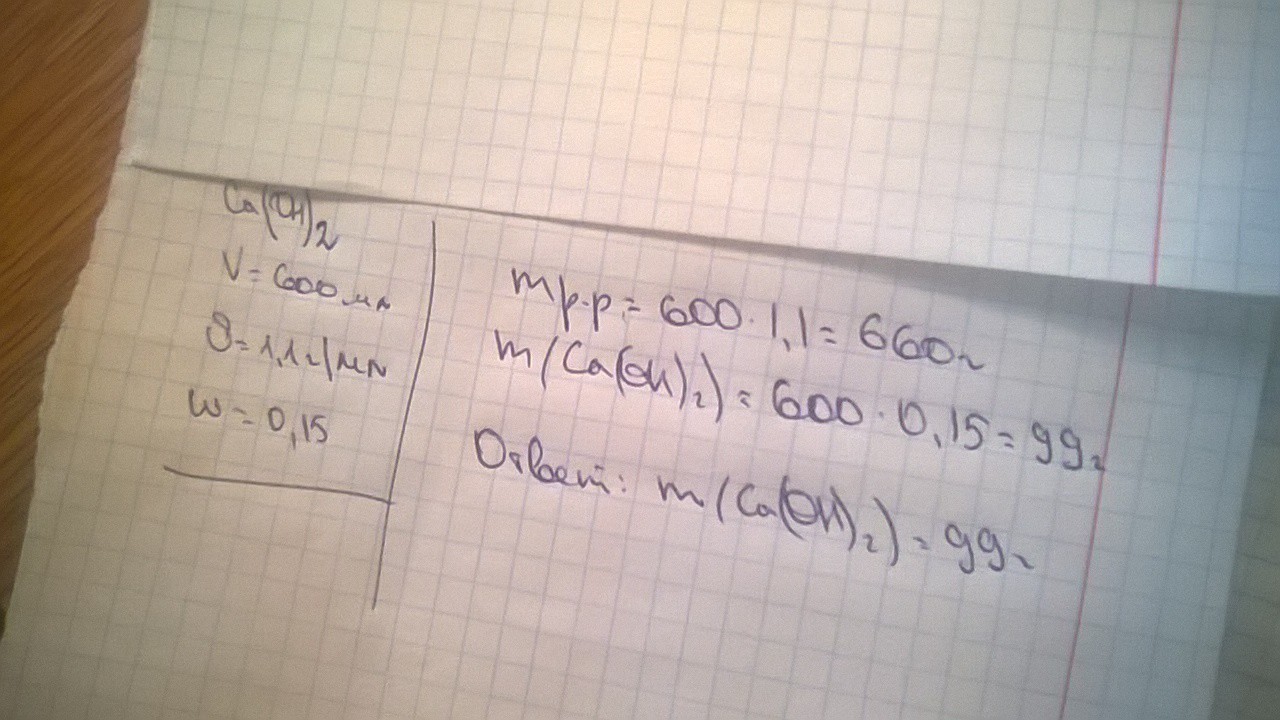 Ca(OH)2
V=600 мл
ρ=1,1г/мл
w=0,15
mр-р=600·1,1=660г
m(Ca(OH)2)=600·0,15=99г
Ответ: m(Ca(OH)2)=99г